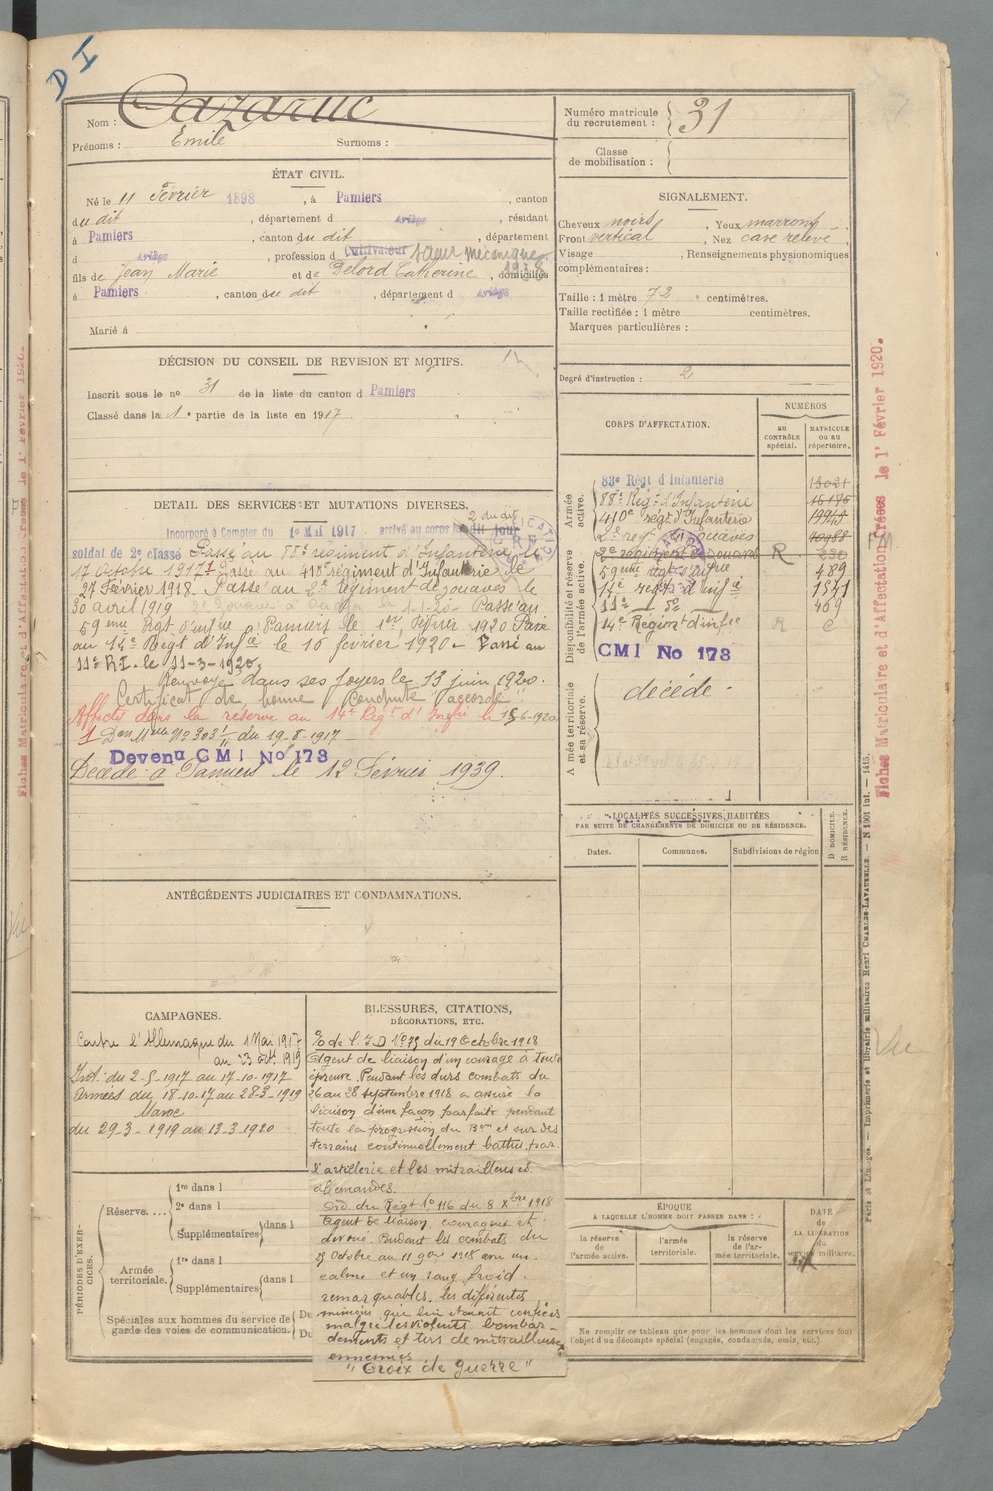 D I
Nom : Cazaruc
Prénoms : Émile Surnoms :
ÉTAT CIVIL.
Né le 11 Février 1898, à Pamiers, canton
du dit, département d Ariège, résidant
à Pamiers, canton du dit, département
d Ariège, profession d Cultivateur mécanique 1938
fils de Jean Marie et de Delord Catherine, domiciliés
à Pamiers, canton du dit, département d Ariège
Marié à
DÉCISION DU CONSEIL DE REVISION ET MOTIFS.
Inscrit sous le no 31 de la liste du canton d Pamiers
Classé dans la 1e partie de la liste en 1917
DETAIL DES SERVICES ET MUTATIONS DIVERSES.
2 du dit
Incorporé à Compter du 1er Mai 1917 arrivé au corps le du dit jour
soldat de 2e classe Passé au 88e régiment d'Infanterie le
17 Octobre 1917 Passé au 410e régiment d'Infanterie le
27 Février 1918. Passé au 2e Régiment de zouaves le
30 avril 1919 1-1-20 Passé au
59eme Régt d'infrie à Pamiers le 1er Février 1920 Passé
au 14e Régt d'Infie le 10 février 1920 - Passé au
11e R.I. le 11-3-1920,
Renvoyé dans ses foyers le 13 juin 1920.
Certificat de bonne conduite "accordé"
Affecté dans la réserve au 14e Régt d'Infie le 15-6-1920
1 Don Melle No 303 du 19-8-1917 -
Devenu CMI No 173
Décédé à Pamiers le 12 Février 1939.
ANTÉCÉDENTS JUDICIAIRES ET CONDAMNATIONS.
CAMPAGNES.
Contre l'Allemagne du 1 Mai 1917
au 23 Oct. 1919
Int. du 2-5-1917 au 17-10-1917
Armées du 18-10-17 au 28-3-1919
Maroc
du 29-3-1919 au 13-3-1920
BLESSURES, CITATIONS,
DÉCORATIONS, ETC.
O/o de l'I D No 75 du 19 Octobre 1918
Agent de liaison d'un courage à toute
épreuve. Pendant les durs combats du
26 au 28 septembre 1918 a assuré la
liaison d'une façon parfaite pendant
toute la progression du Bon et sur des
terrains continuellement battus par
l'artillerie et les mitrailleuses
allemandes.
Ord. du Régt No 116 du 8 Xbre 1918
Agent de liaison, courageux et
dévoué. Pendant les combats du
Octobre au 11 9bre 1918 avec un
calme et un sang froid
remarquables, les différentes
missions qui lui étaient confiées
malgré les violents bombar-
dements et tirs de mitrailleuses
ennemies
"Croix de guerre"
PÉRIODES D'EXERCICES.
Réserve....
1re dans l
2e dans l
Supplémentaires dans l
Armée territoriale.
1re dans l
Supplémentaires dans l
Spéciales aux hommes du service de garde des voies de communication.
Du
Du
Numéro matricule du recrutement : 31
Classe de mobilisation :
SIGNALEMENT.
Cheveux noirs, Yeux marrons,
Front vertical, Nez cave relevé,
Visage , Renseignements physionomiques
complémentaires :
Taille : 1 mètre 72 centimètres.
Taille rectifiée : 1 mètre centimètres.
Marques particulières :
Degré d'instruction : 2
CORPS D'AFFECTATION.
NUMÉROS
AU CONTRÔLE spécial.
MATRICULE OU AU répertoire.
Armée active.
83e Régt d'Infanterie
88e Régt d'Infanterie
410e régt d'Infanterie
2e régt de Zouaves
Disponibilité et réserve de l'armée active.
2e régiment de zouaves R
59eme Régt d'infrie 489
14e Régt d'Infie 1541
11e do 469
14e Régiment d'infie R
CMI No 173
Armée territoriale et sa réserve.
décédé -
LOCALITÉS SUCCESSIVES HABITÉES
PAR SUITE DE CHANGEMENTS DE DOMICILE OU DE RÉSIDENCE.
Dates. Communes. Subdivisions de région
D DOMICILE.
R RÉSIDENCE.
ÉPOQUE
A LAQUELLE L'HOMME DOIT PASSER DANS :
la réserve de l'armée active.
l'armée territoriale.
la réserve de l'armée territoriale.
DATE de LA LIBÉRATION du service militaire.
Ne remplir ce tableau que pour les hommes dont les services font
l'objet d'un décompte spécial (engagés, condamnés, omis, etc.).
Fiches Matriculaire et d'Affectation Créées le 1er Février 1920.
Paris et Limoges. — Imprimerie et librairie militaires Henri CHARLES-LAVAUZELLE. — N 1901 int. — 1415.
Vu